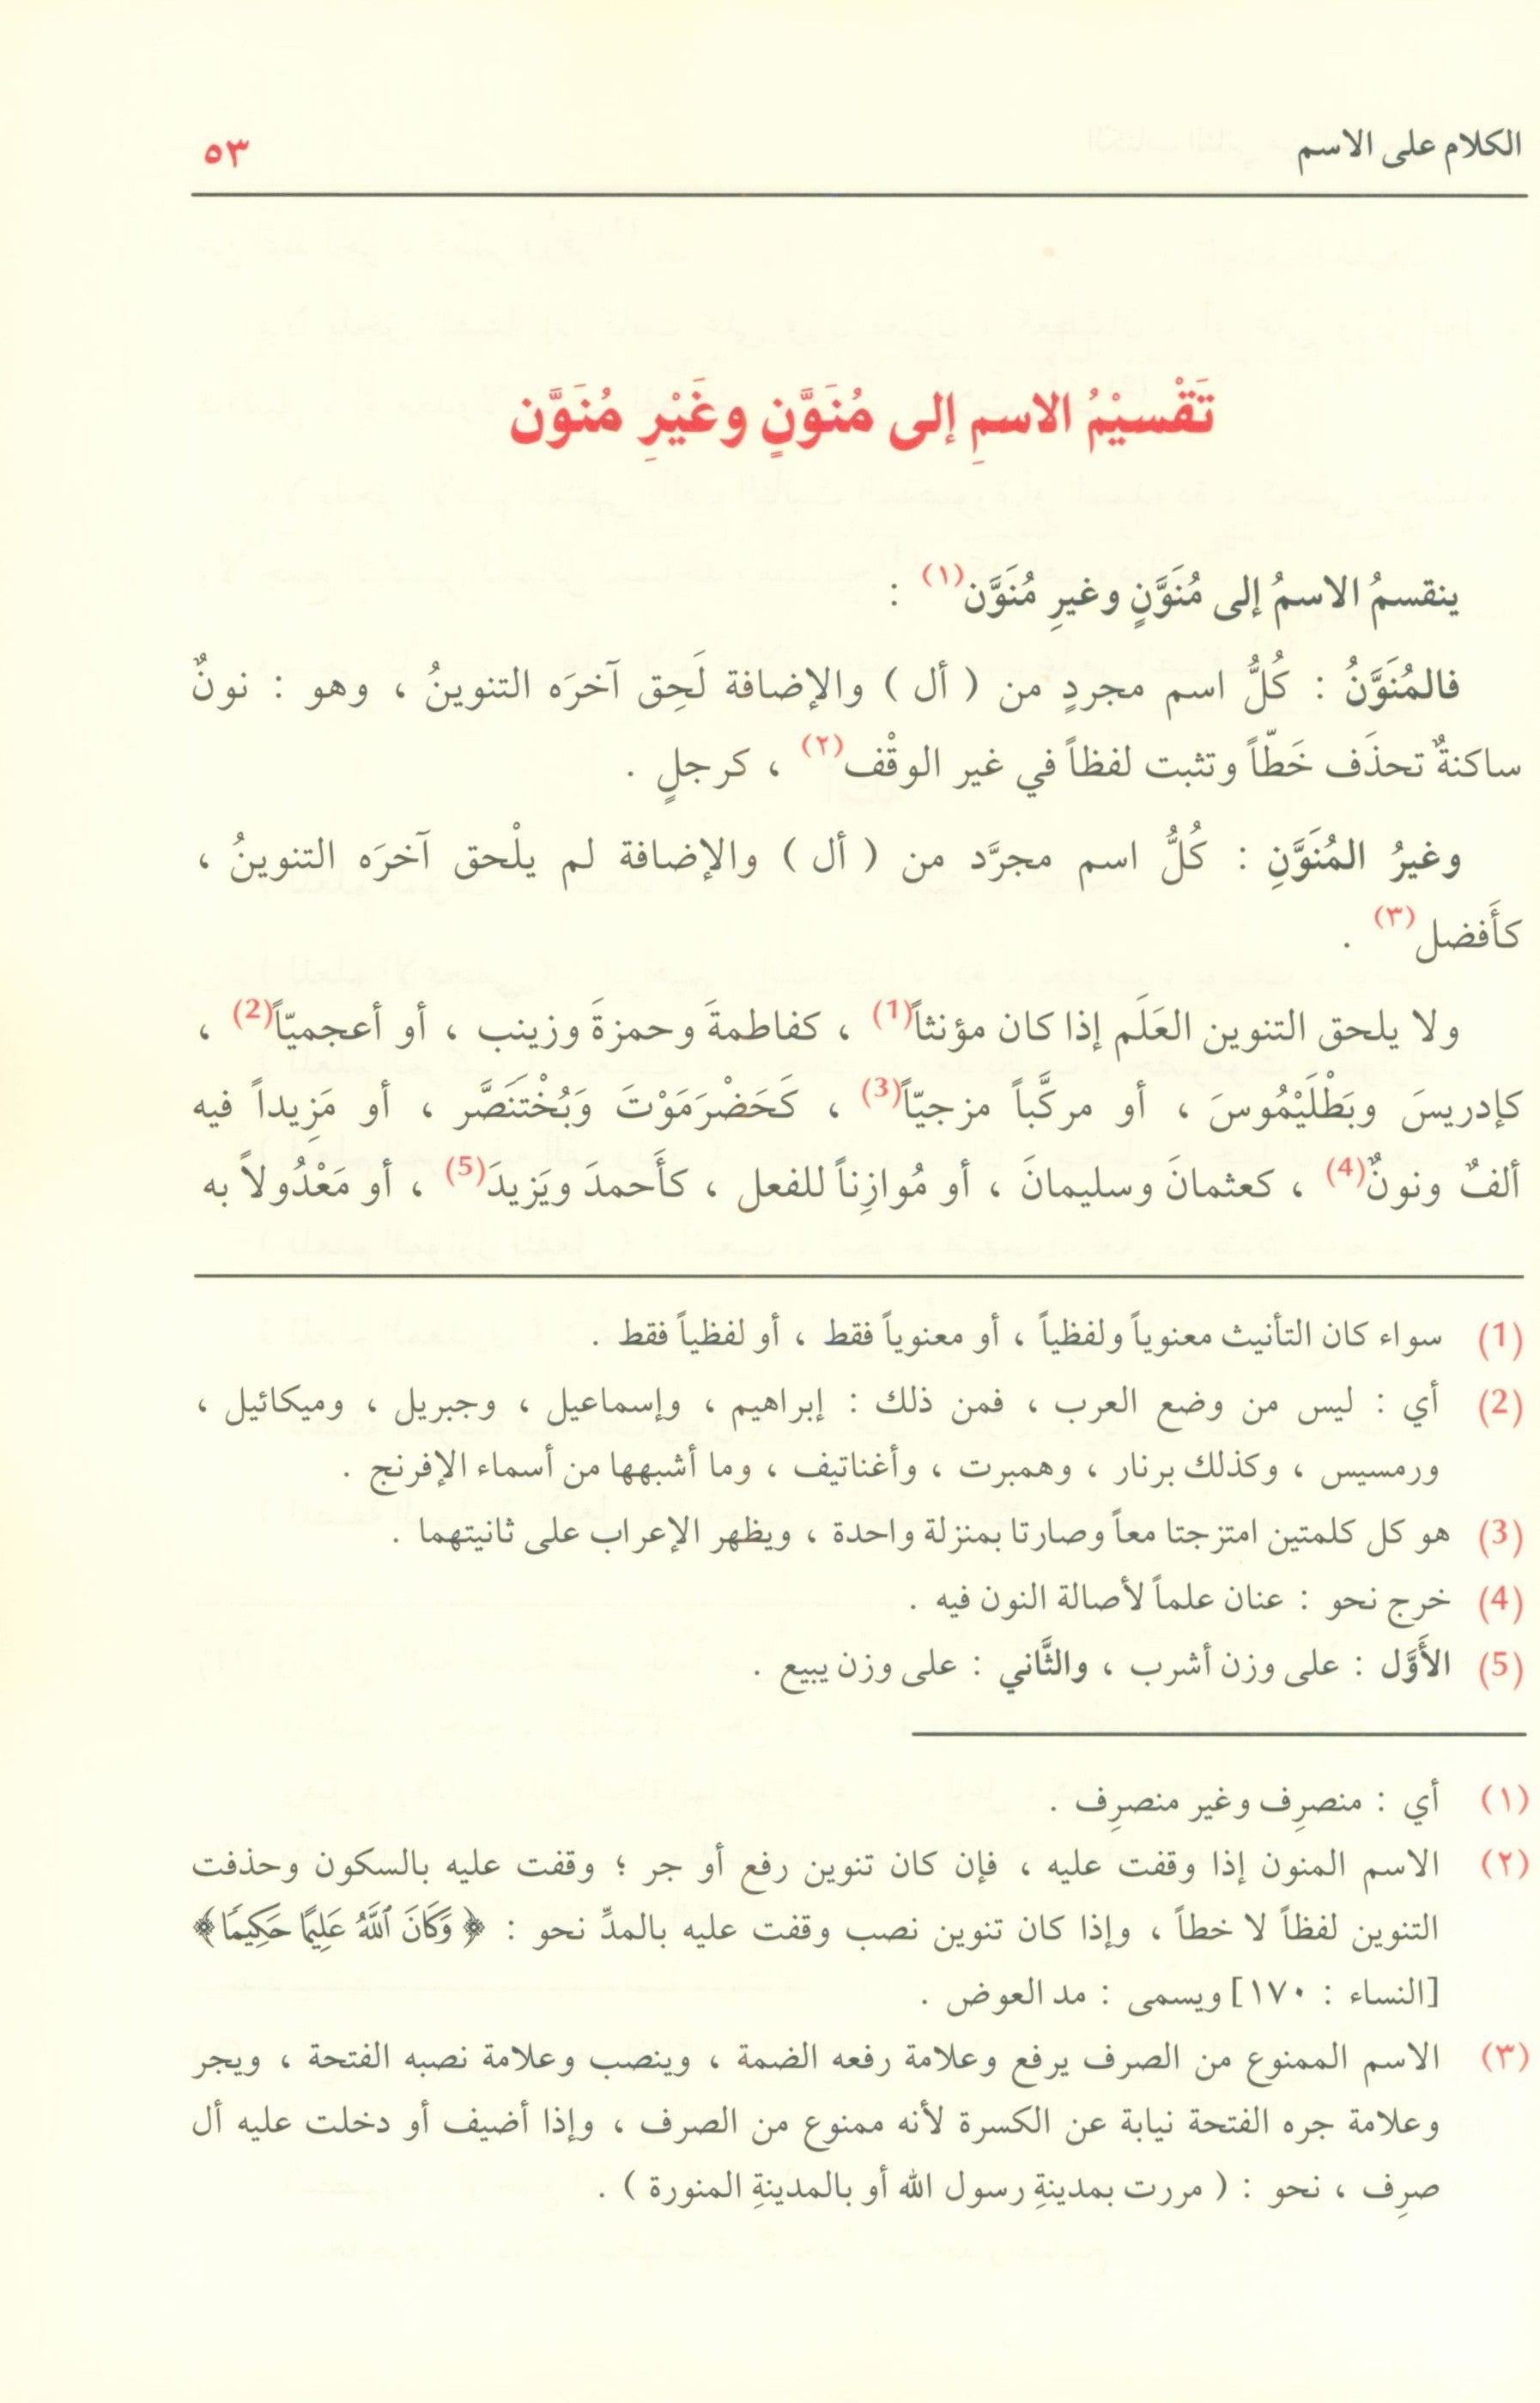 الكلام على الاسم ٥٣
تَقْسيْمُ الاسمِ إلى مُنَوَّنٍ وغَيْرِ مُنَوَّن
ينقسمُ الاسمُ إلى مُنَوَّنٍ وغيرِ مُنَوَّن(١) :
فالمُنَوَّنُ : كُلُّ اسم مجردٍ من ( أل ) والإضافة لَحِق آخرَه التنوينُ ، وهو : نونٌ
ساكنةٌ تحذَف خَطّاً وتثبت لفظاً في غير الوقْف(٢) ، كرجلٍ .
وغيرُ المُنَوَّنِ : كُلُّ اسم مجرَّد من ( أل ) والإضافة لم يلْحق آخرَه التنوينُ ،
كأَفضل(٣) .
ولا يلحق التنوين العَلَم إذا كان مؤنثاً(1) ، كفاطمةَ وحمزةَ وزينب ، أو أعجميّاً(2) ،
كإدريسَ وبَطْلَيْمُوسَ ، أو مركَّباً مزجيّاً(3) ، كَحَضْرَمَوْتَ وَبُخْتَنَصَّر ، أو مَزِيداً فيه
ألفٌ ونونٌ(4) ، كعثمانَ وسليمانَ ، أو مُوازِناً للفعل ، كأَحمدَ ويَزيدَ(5) ، أو مَعْدُولاً به
(1) سواء كان التأنيث معنوياً ولفظياً ، أو معنوياً فقط ، أو لفظياً فقط .
(2) أي : ليس من وضع العرب ، فمن ذلك : إبراهيم ، وإسماعيل ، وجبريل ، وميكائيل ،
ورمسيس ، وكذلك برنار ، وهمبرت ، وأغناتيف ، وما أشبهها من أسماء الإفرنج .
(3) هو كل كلمتين امتزجتا معاً وصارتا بمنزلة واحدة ، ويظهر الإعراب على ثانيتهما .
(4) خرج نحو : عنان علماً لأصالة النون فيه .
(5) الأَوَّل : على وزن أشرب ، والثَّاني : على وزن يبيع .
(١) أي : منصرِف وغير منصرِف .
(٢) الاسم المنون إذا وقفت عليه ، فإن كان تنوين رفع أو جر ؛ وقفت عليه بالسكون وحذفت
التنوين لفظاً لا خطاً ، وإذا كان تنوين نصب وقفت عليه بالمدِّ نحو : ﴿ وَكَانَ ٱللَّهُ عَلِيمًا حَكِيمًا ﴾
[النساء : ١٧٠] ويسمى : مد العوض .
(٣) الاسم الممنوع من الصرف يرفع وعلامة رفعه الضمة ، وينصب وعلامة نصبه الفتحة ، ويجر
وعلامة جره الفتحة نيابة عن الكسرة لأنه ممنوع من الصرف ، وإذا أضيف أو دخلت عليه أل
صرِف ، نحو : ( مررت بمدينةِ رسول الله أو بالمدينةِ المنورة ) .